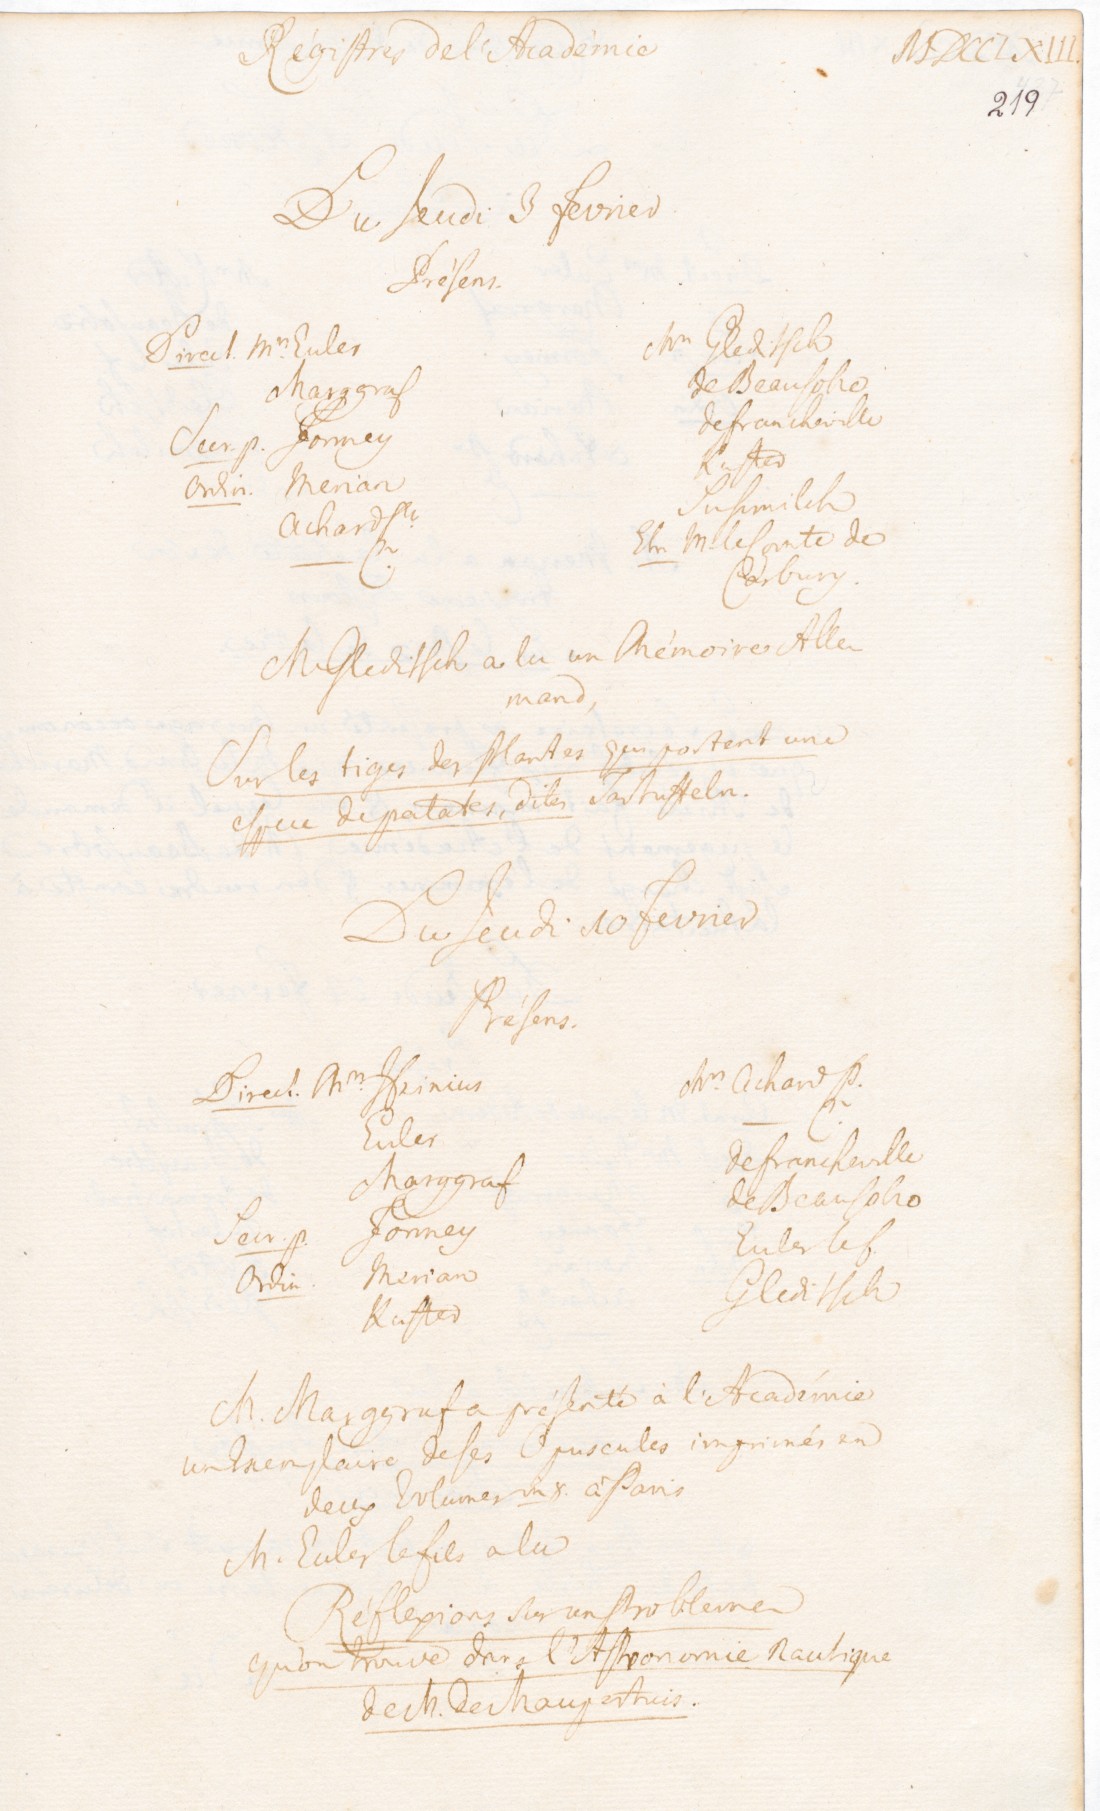 Régistres de l'Académie
MDCCLXIII.
219
Du Jeudi 3 fevrier
Présens.
Direct. Mrs Euler
Marggraf
Secr. p. Formey
Ordin. Merian
Achard
Mrs Gleditsch
de Beausobre
de francheville
Kuster
Susmilch
Etr. M. le Comte de
Carbury.
M. Gleditsch a lu un Mémoires Alle
mand,
Sur les tiges des plantes qui portent une
espece de patates, dites Tartuffeln.
Du Jeudi 10 fevrier
Présens.
Direct. Mrs Heinius
Euler
Marggraf
Secr. p. Formey
Ordin. Merian
Kuster
Mrs Achard
de francheville
de Beausobre
Euler le f.
Gleditsch
M. Marggraf a présenté à l'Académie
un Exemplaire de ses Opuscules imprimés en
deux Volumes in 8. à Paris
M. Euler le fils a lu
Réflexions sur un Probleme
qu'on trouve dans l'Astronomie Nautique
de M. de Maupertuis.